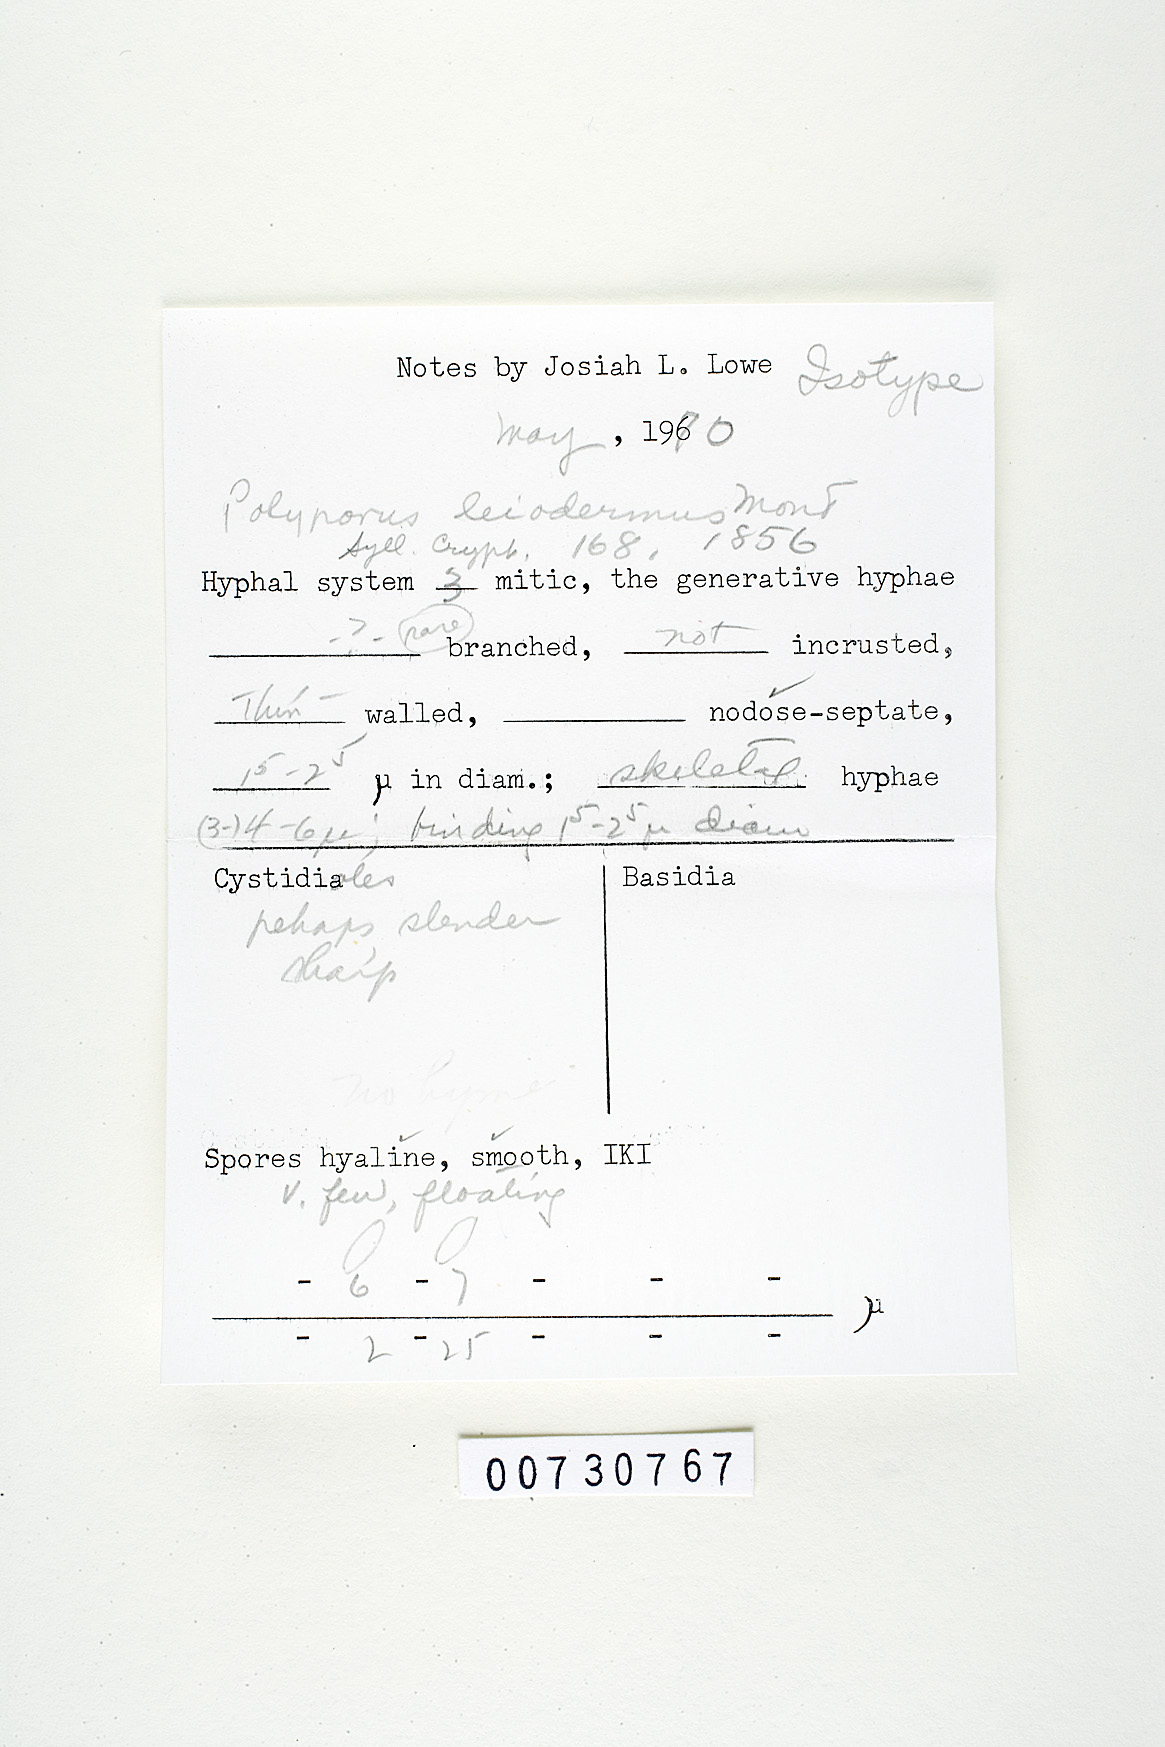 Notes by Josiah L. Lowe Isotype
May, 1970
Polyporus leiodermus Mont
Syll. Crypt. 168, 1856
Hyphal system 3 mitic, the generative hyphae
-?- rare branched, not incrusted,
Thin- walled, ✓ nodose-septate,
1⁵-2⁵ μ in diam.; skeletal hyphae
(3-)4-6μ; binding 1⁵-2⁵μ diam
Cystidioles
pehaps slender
sharp
Basidia
no hyme
Spores hyaline, smooth, IKI -
V. few, floating
- 6 - 7 - - -
μ
- 2 - 25 - - -
00730767